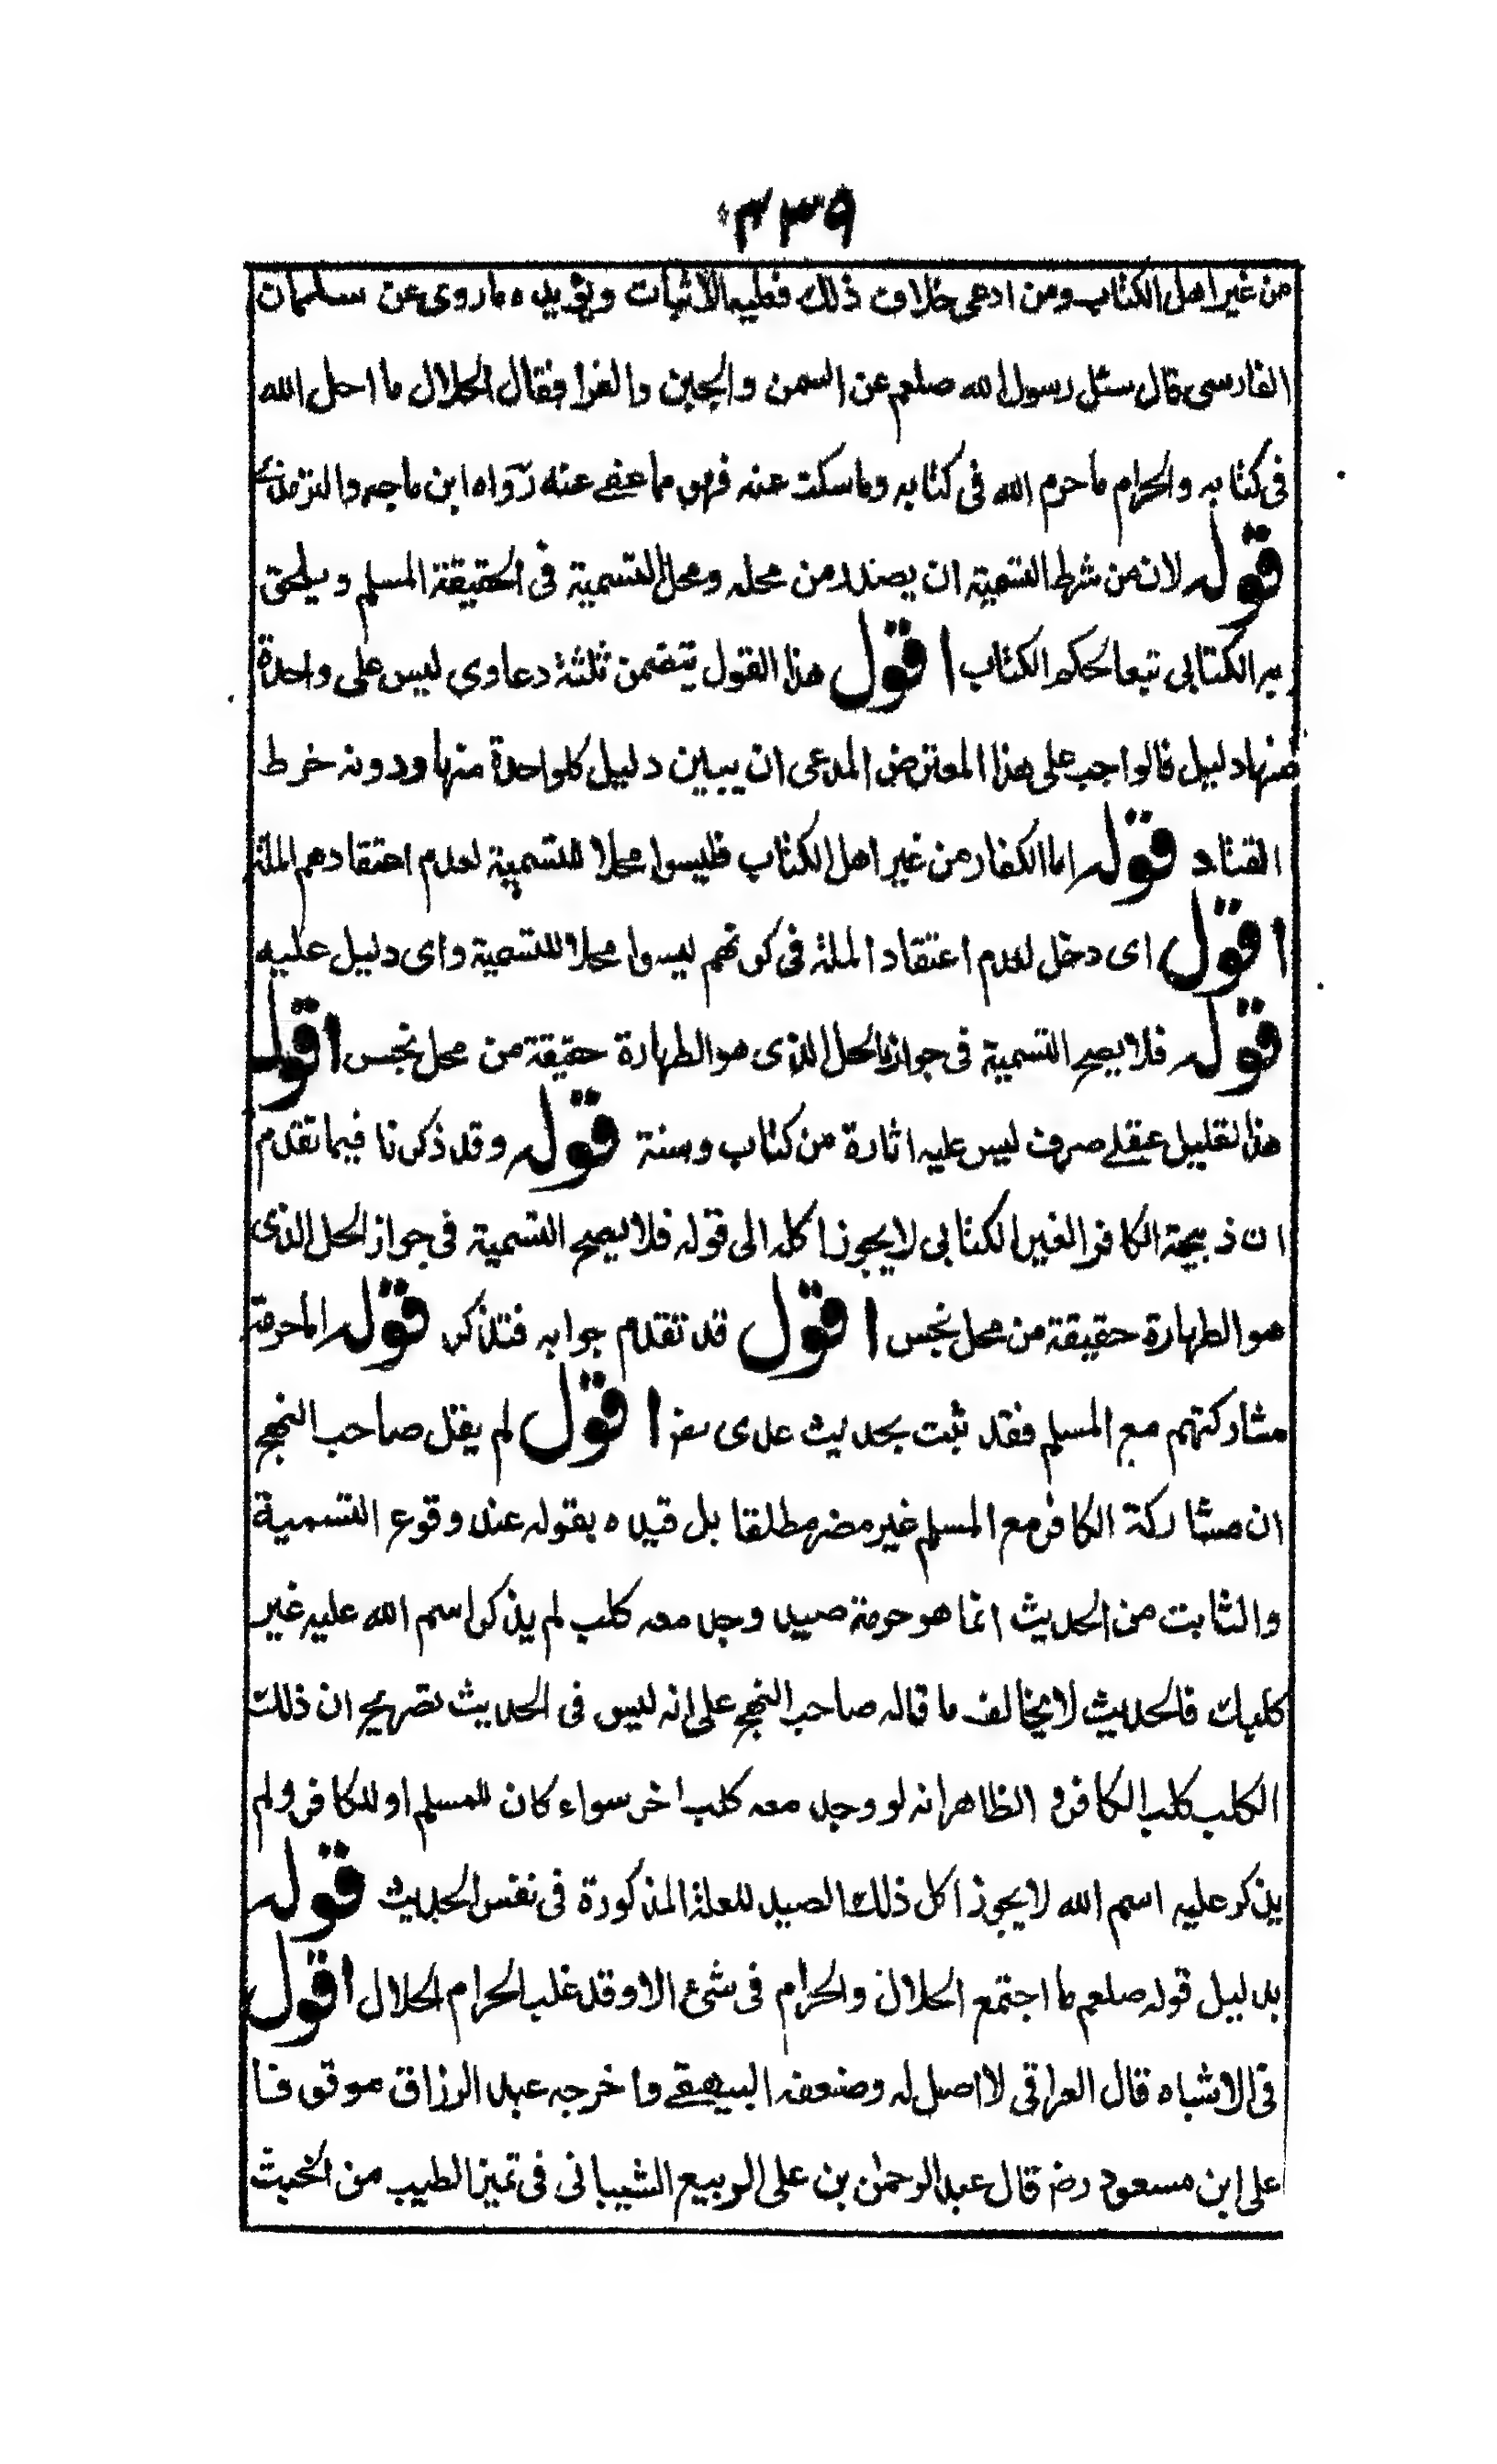 ۳۳۹
من غير اهل الكتاب ومن ادعى خلاف ذلك فعليه الاثبات ويؤيده ما روى عن سلمان
الفارسى قال سئل رسول الله صلعم عن السمن والجبن والفرا فقال الحلال ما احل الله
فى كتابه والحرام ما حرم الله فى كتابه وما سكت عنه فهو مما عفى عنه رواه ابن ماجه والترمذى
قوله لان من شرط التسمية ان يصدر من محله ومحل التسمية فى الحقيقة المسلم ويلحق
به الكتابى تبعا لحكم الكتاب اقول هذا القول يتضمن ثلثة دعاوي ليس على واحدة
منها دليل فالواجب على هذا المعترض المدعى ان يبين دليل كلواحدة منها ودونه خرط
القتاد قوله اما الكفار من غير اهل الكتاب فليسوا محلا للتسمية لعدم اعتقادهم الملة
اقول اى دخل لعدم اعتقاد الملة فى كونهم ليسوا محلا للتسمية واى دليل عليه
قوله فلا يصح التسمية فى جواز الحل الذى هو الطهارة حقيقة من محل نجس اقول
هذا تعليل عقلے صرف ليس عليه اثارة من كتاب وسنة قوله وقد ذكرنا فيما تقدم
ان ذبيحة الكافر الغير الكتابى لا يجوز اكله الى قوله فلا يصح التسمية فى جواز الحل الذى
هو الطهارة حقيقة من محل نجس اقول قد تقدم جوابه فتذكر قوله المحرمة
مشاركتهم مع المسلم فقد ثبت بحديث عدى اقول لم يقل صاحب النهج
ان مشاركة الكافر مع المسلم غير مضر مطلقا بل قيده بقوله عند وقوع التسمية
والثابت من الحديث انما هو حرمة صيد وجد معه كلب لم يذكر اسم الله عليه غير
كلبك فالحديث لا يخالف ما قاله صاحب النهج على انه ليس فى الحديث تصريح ان ذلك
الكلب كلب الكافر و الظاهر انه لو وجد معه كلب اخر سواء كان للمسلم او للكافر ولم
يذكر عليه اسم الله لا يجوز اكل ذلك الصيد للعلة المذكورة فى نفس الحديث قوله
بدليل قوله صلعم ما اجتمع الحلال والحرام فى شئ الا وقد غلب الحرام الحلال اقول
فى الاشباه قال العراقى لا اصل له وضعفه البيهقے واخرجه عبد الرزاق موقوفا
على ابن مسعود رض قال عبد الرحمٰن بن على الربيع الشيبانى فى تميز الطيب من الخبث